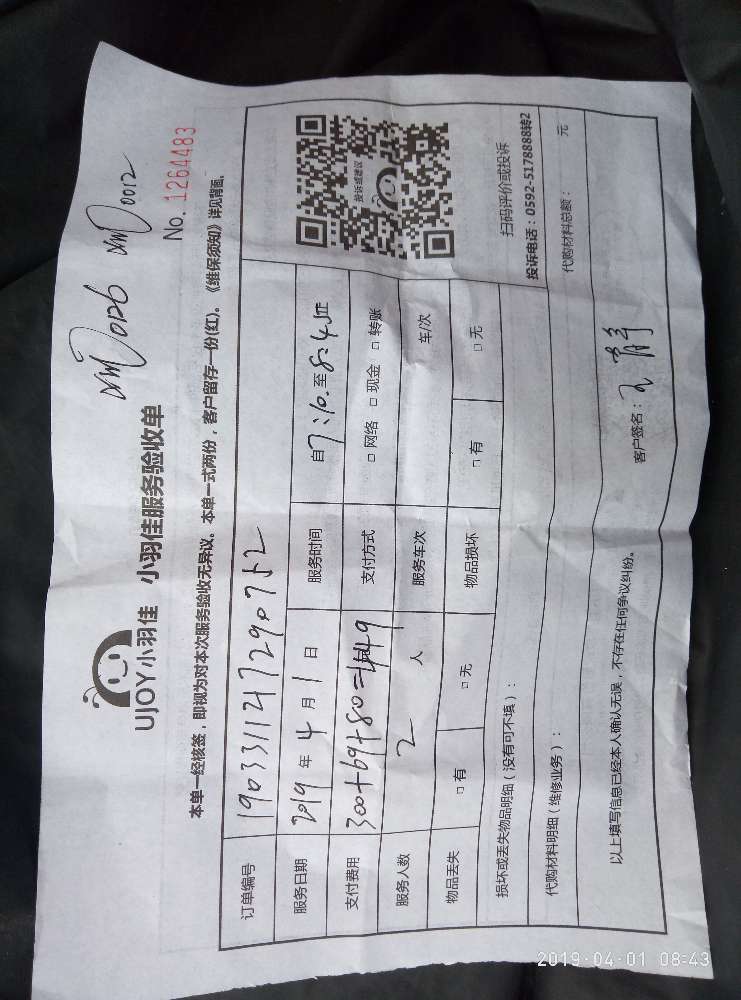 UJOY小羽佳 小羽佳服务验收单
XM 0126 XM 0012
No. 1264483
本单一经核签，即视为对本次服务验收无异议。本单一式两份，客户留存一份(红)。《维保须知》详见背面。
订单编号 19033112147290752
服务日期 2019 年 4 月 1 日 服务时间 自 7:10 至 8:40 止
支付费用 300+69+80=449 支付方式 □ 网络 □ 现金 □ 转账
服务人数 2 人 服务车次 车/次
物品丢失 □ 有 □ 无 物品损坏 □ 有 □ 无
投诉或建议
扫码评价或投诉
投诉电话：0592-5178888转2
损坏或丢失物品明细（没有可不填）：
代购材料明细（维修业务）： 代购材料总额： 元
以上填写信息已经本人确认无误，不存在任何争议纠纷。
客户签名：
2019-04-01 08:43